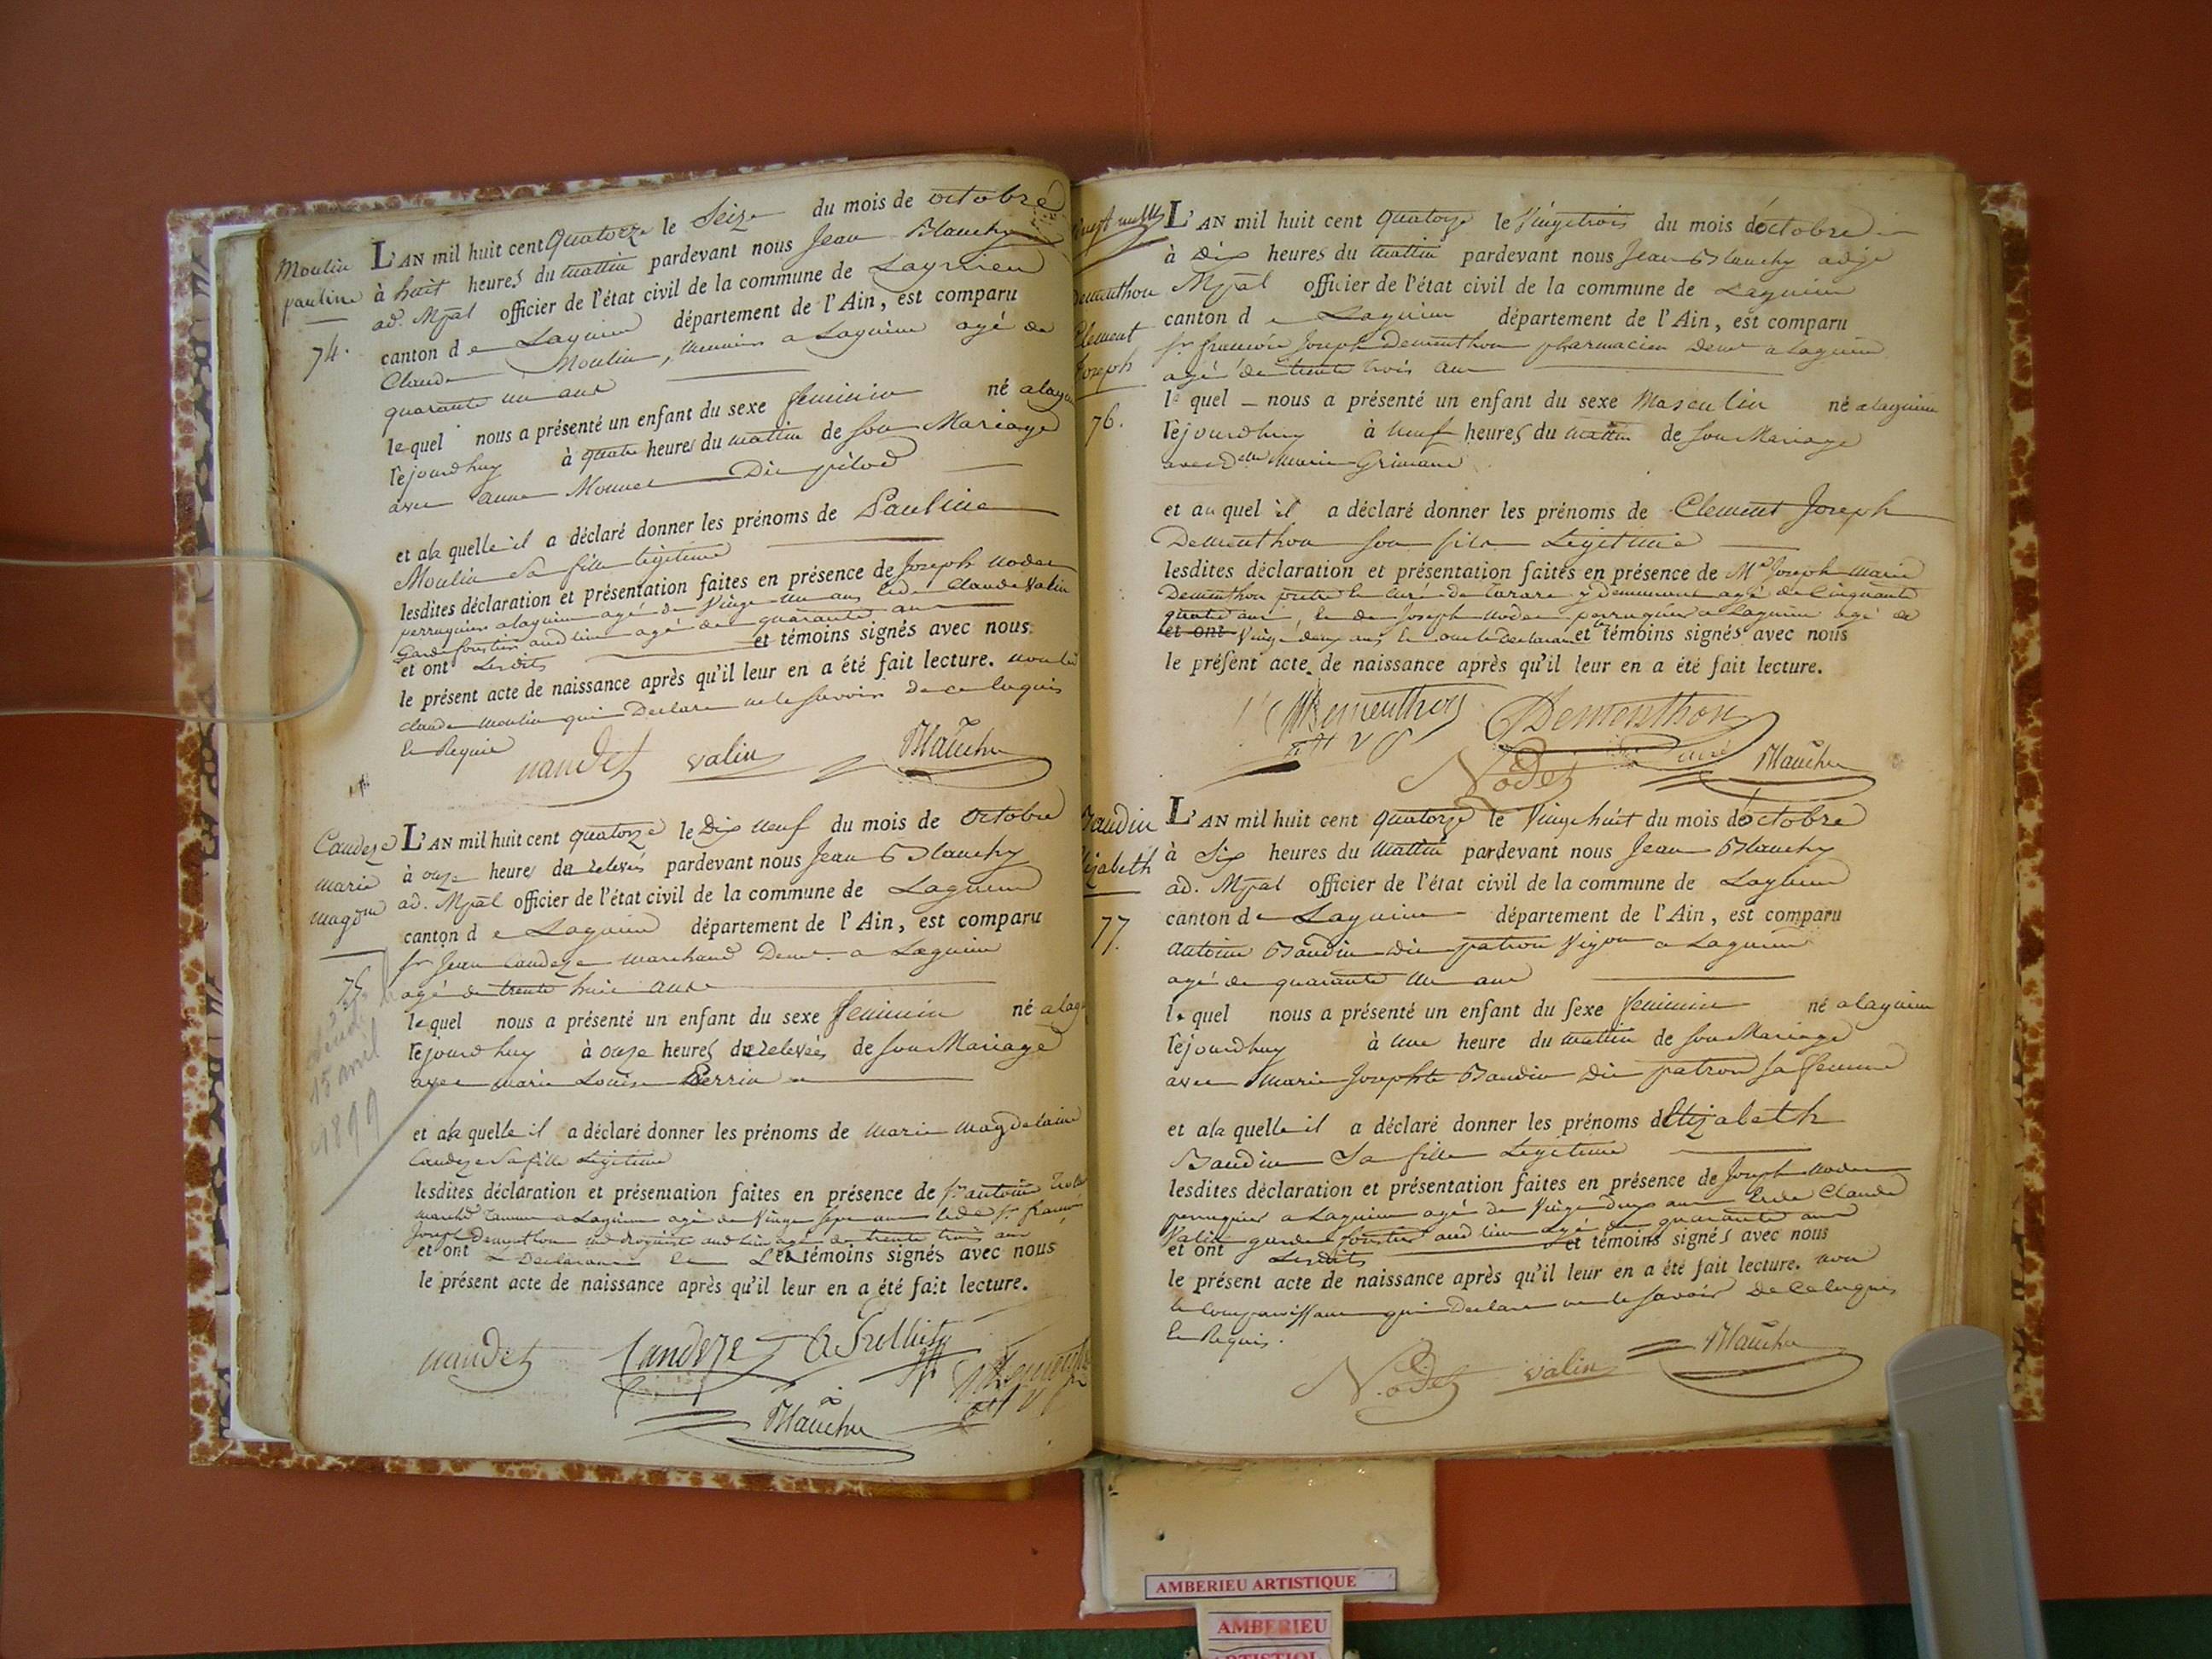 Moulin
pauline
74.
L'AN mil huit cent quatorze le Seize du mois de octobre
à huit heures du mattin pardevant nous Jean Blanchy
ad. Mpal officier de l'état civil de la commune de Lagnieu
canton de Lagnieu département de l'Ain, est comparu
Claude Moulin, a Lagnieu agé de
quarante un ans
lequel nous a présenté un enfant du sexe feminin né a lagn
cejourdhuy à quatre heures du mattin de son Mariage
avec anne Monnet Dit pilod
et a laquelle il a déclaré donner les prénoms de Pauline
Moulin sa fille legitime
lesdites déclaration et présentation faites en présence de Joseph nodet
perruquier a lagnieu agé de vingt un ans et de Claude Valin
Garde forestier aud lieu agé de quarante ans
et ont Lesdits et témoins signés avec nous
le présent acte de naissance après qu'il leur en a été fait lecture. non led
claude moulin qui Declare ne le savoir de ce enquis
et Requis
naudet valin Blanchy
Candeze
marie
magdne
75
15 avril
1899
L'AN mil huit cent quatorze le Dix neuf du mois de octobre
à onze heures du relevés pardevant nous Jean Blanchy
ad. Mpal officier de l'état civil de la commune de Lagnieu
canton de Lagnieu département de l'Ain, est comparu
sr Jean Candeze marchand Demt a Lagnieu
agé de trente huit ans
lequel nous a présenté un enfant du sexe feminin né a lag
cejourdhuy à onze heures du relevées de son Mariage
avec marie Louise Perrin
et a laquelle il a déclaré donner les prénoms de marie magdelaine
Candeze sa fille Legitime
lesdites déclaration et présentation faites en présence de sr antoine
marchd Tanneur a Lagnieu agé de vingt sept ans et de sr françois
Joseph Dementhon md droguiste aud lieu agé de trente trois ans
et ont Le Declarant et Les témoins signés avec nous
le présent acte de naissance après qu'il leur en a été fait lecture.
naudet Candeze
Blanchy
Dementhon
Clement
Joseph
76.
L'AN mil huit cent quatorze le Vingtrois du mois doctobre
à Dix heures du mattin pardevant nous Jean Blanchy adjt
Mpal officier de l'état civil de la commune de Lagnieu
canton de Lagnieu département de l'Ain, est comparu
sr françois Joseph Dementhon pharmacien Demt a Lagnieu
agé de trente trois ans
lequel nous a présenté un enfant du sexe Masculin né a lagnieu
cejourdhuy à neuf heures du mattin de son Mariage
avec Delle Marie Grimand
et auquel il a déclaré donner les prénoms de Clement Joseph
Dementhon son fils Legitime
lesdites déclaration et présentation faites en présence de Mr Joseph marie
Dementhon pretre curé de tarare y demeurant agé de Cinquante
quatre ans, et de Joseph nodet perruquier a Lagnieu agé de
et ont vingt deux ans, et ont le Declarant et témoins signés avec nous
le présent acte de naissance après qu'il leur en a été fait lecture.
Dementhon Dementhon
Nodet curé Blanchy
Baudin
Elizabeth
77.
L'AN mil huit cent quatorze le Vingt huit du mois doctobre
à Six heures du Mattin pardevant nous Jean Blanchy
ad. Mpal officier de l'état civil de la commune de Lagnieu
canton de Lagnieu département de l'Ain, est comparu
antoine Baudin Dit patron Vigon a Lagnieu
agé de quarante un ans
lequel nous a présenté un enfant du sexe feminin né a lagnieu
cejourdhuy à une heure du mattin de son Mariage
avec Marie Josephte Baudin Dit patron sa femme
et a laquelle il a déclaré donner les prénoms dElizabeth
Baudin Sa fille Legitime
lesdites déclaration et présentation faites en présence de Joseph nodet
perruquier a Lagnieu agé de vingt deux ans et de Claude
Valin garde forestier aud lieu agé de quarante ans
et ont Lesdits et témoins signés avec nous
le présent acte de naissance après qu'il leur en a été fait lecture. non
le comparoissant qui Declare ne le savoir De ce enquis
et Requis.
Nodet valin Blanchy
AMBERIEU ARTISTIQUE
AMBERIEU
ARTISTIQ